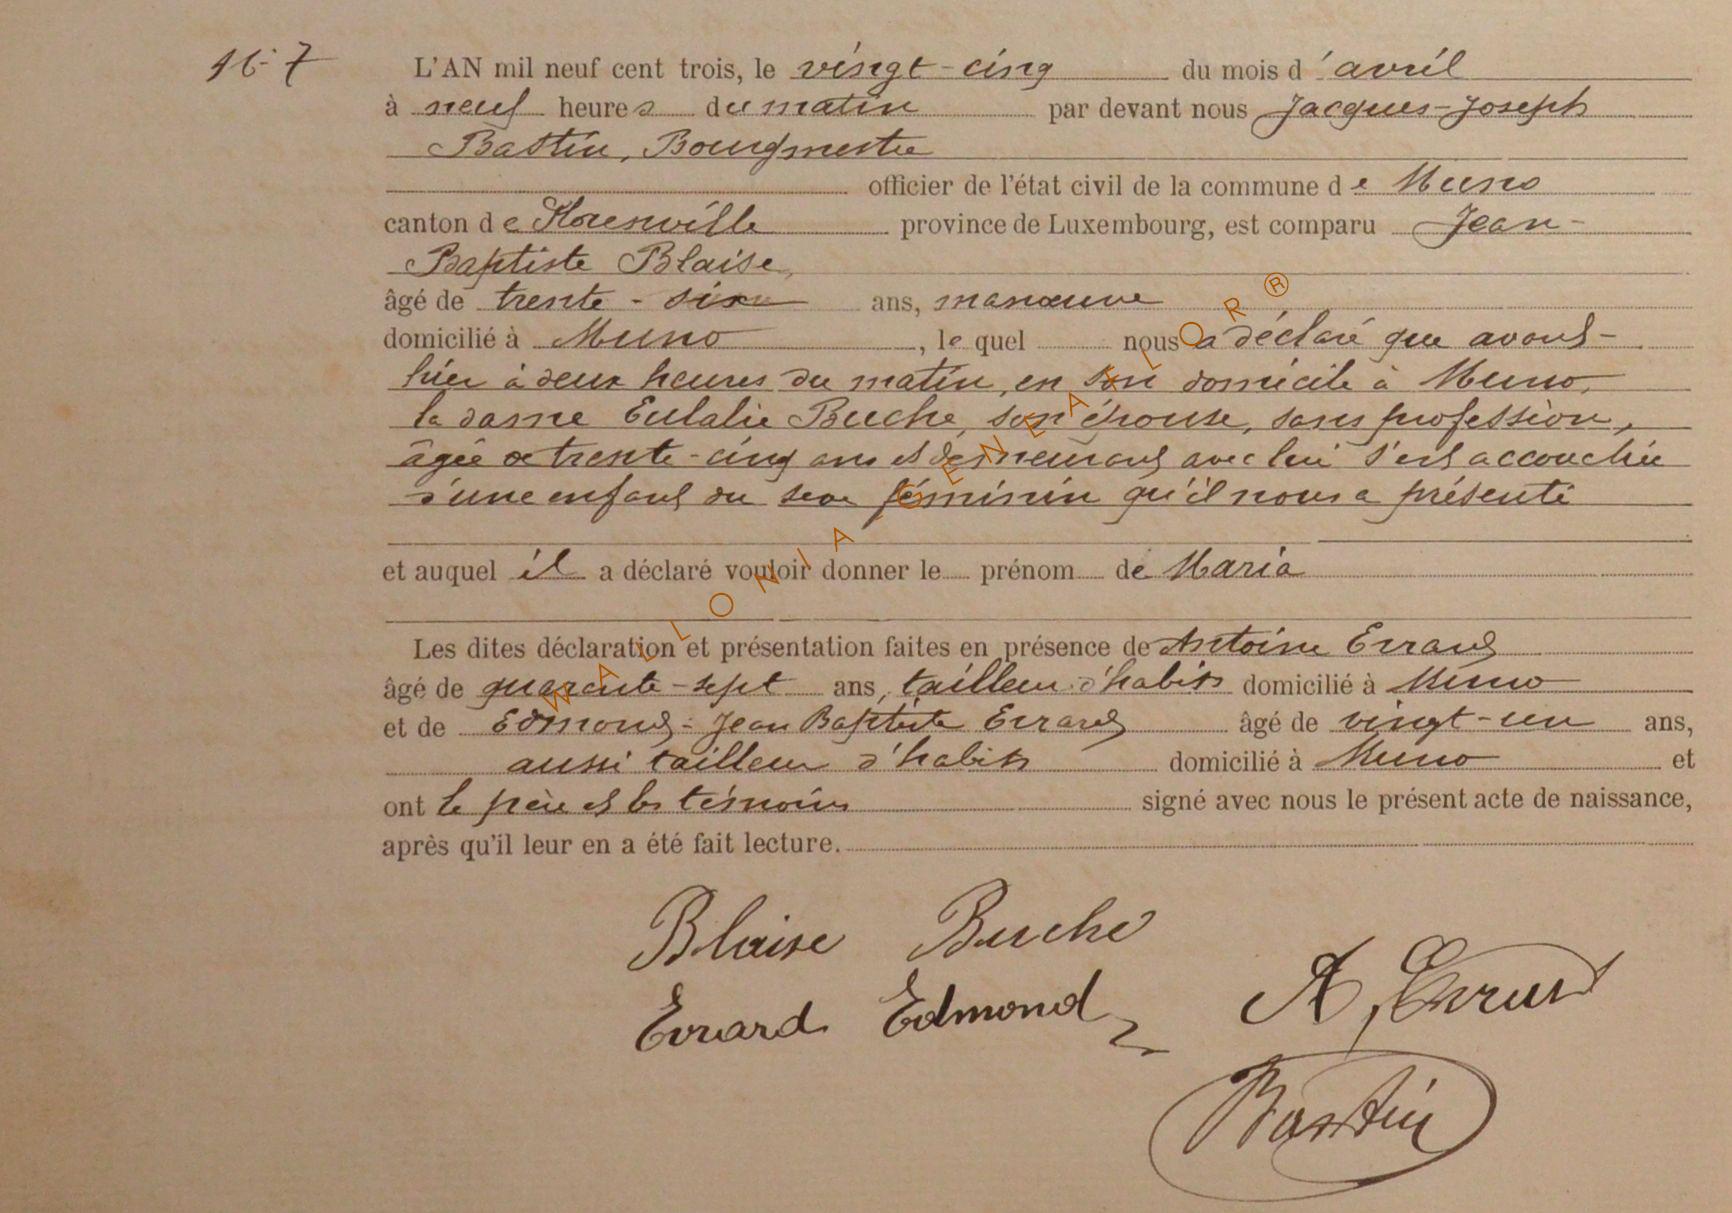 N° 7
L'AN mil neuf cent trois, le vingt-cinq du mois d'avril
à neuf heures du matin par devant nous Jacques-Joseph
Bastin, Bourgmestre
officier de l'état civil de la commune de Muno
canton de Florenville province de Luxembourg, est comparu Jean-
Baptiste Blaise,
âgé de trente-six ans, manœuvre
domicilié à Muno, lequel nous a déclaré que avant-
hier à deux heures du matin, en son domicile à Muno,
la dame Eulalie Buche, son épouse, sans profession,
âgée de trente-cinq ans et demeurant avec lui s'est accouchée
d'une enfant du sexe féminin qu'il nous a présenté
et auquel il a déclaré vouloir donner le prénom de Maria
Les dites déclaration et présentation faites en présence de Antoine Errard
âgé de quarante-sept ans, tailleur d'habits domicilié à Muno
et de Edmond-Jean Baptiste Errard âgé de vingt-un ans,
aussi tailleur d'habits domicilié à Muno et
ont le père et les témoins signé avec nous le présent acte de naissance,
après qu'il leur en a été fait lecture.
Blaise Buche
Errard Edmond
A, Errard
Bastin
WALLONIA GENEAFLOR®